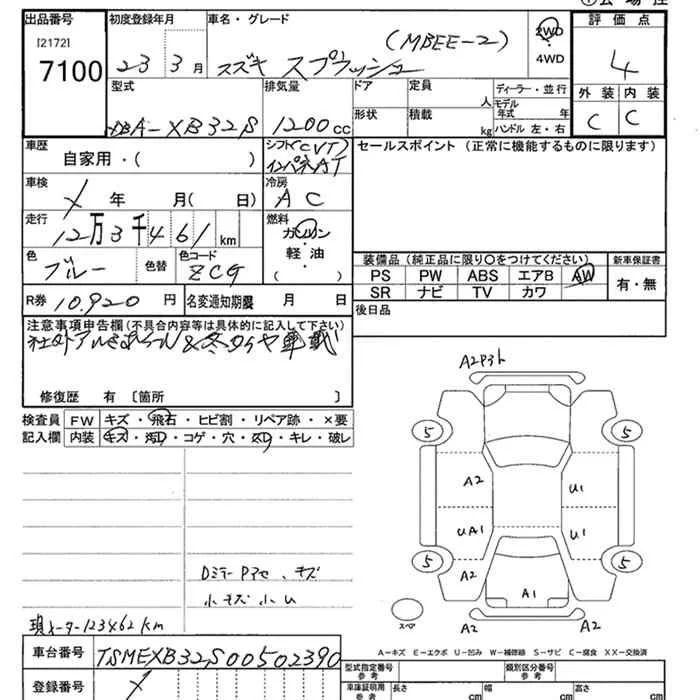 出品番号
[2172]
7100
初度登録年月
23 3月
車名・グレード
(MBEE-2)
スズキ スプラッシュ
2WD
・
4WD
評価点
4
外装 内装
C C
型式
DBA-XB32S
排気量
1200cc
ドア
形状
定員
人
積載
kg
ディーラー・並行
モデル
年式 年
ハンドル 左・右
車歴
自家用・( )
シフト CVT
インパネAT
セールスポイント (正常に機能するものに限ります)
車検
年 月( 日)
冷房
AC
走行
12万3千461km
燃料
ガソリン
・
軽油
( )
色
ブルー
色替
色コード
ZCG
装備品(純正品に限り○をつけてください)
新車保証書
PS PW ABS エアB AW
SR ナビ TV カワ
有・無
R券 10.920円
名変通知期限 月 日
後日品
注意事項申告欄(不具合内容等は具体的に記入して下さい)
社外アルミ &冬タイヤ車載
修復歴 有 〔箇所 〕
検査員
記入欄
FW キズ・飛石・ヒビ割・リペア跡・×要
内装 キズ・汚れ・コゲ・穴・スレ・キレ・破レ
A2Pヨレ
5 5
A2 U1
UA1 U1
5 5
A2
A1
A2 A2
スペア
Dミラー Pアセ、キズ
小キズ小U
現メーター123462km
A-キズ E-エクボ U-凹み W-補修跡 S-サビ C-腐食 XX-交換済
車台番号
TSMEXB32S00502390
登録番号
型式指定番号
参考
類別区分番号
参考
車庫証明用
参考
長さ cm
幅 cm
高さ cm